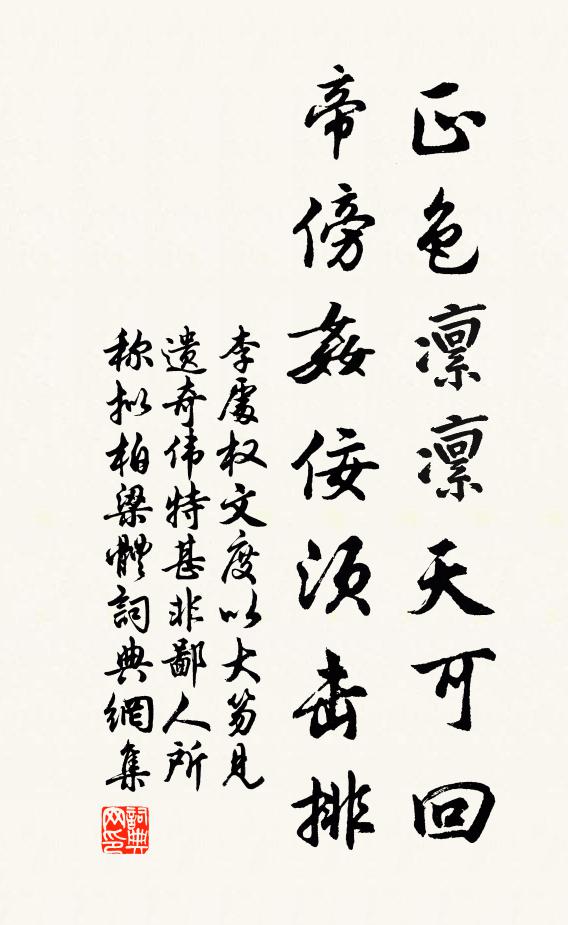 正色凛凛天可回
帝傍姦佞须击排
李處权文度以大笏見
遗奇伟特甚非鄙人所
称拟柏梁體詞典網集
詞典
网印